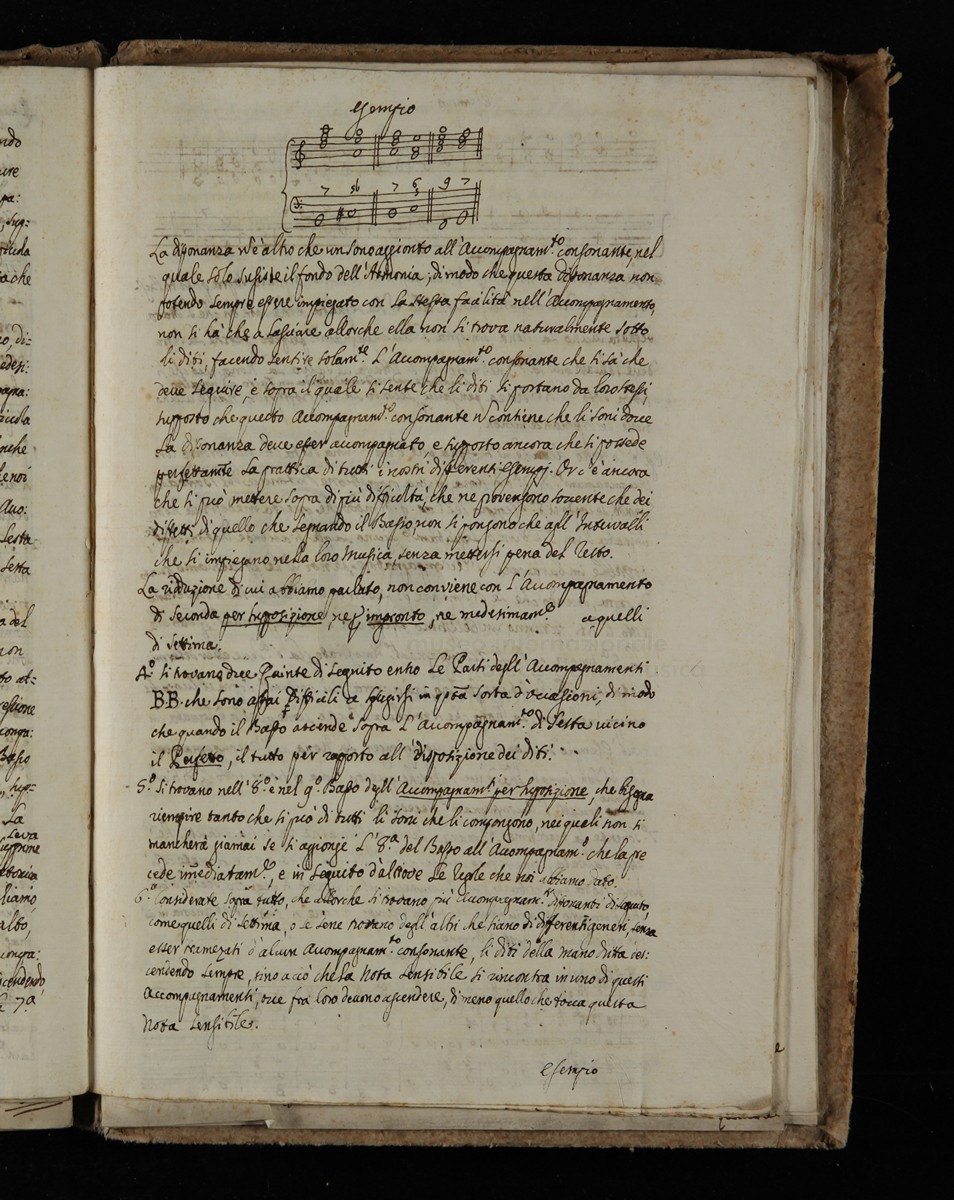 Esempio
7 5b 7 6 5 9 7
La disonanza n'è altro che un sono aggionto all'Accompagnam.to consonante, nel
quale solo sussiste il fondo dell'Armonia; di modo che questa disonanza non
potendo sempre essere impiegato con la stessa facilità nell'Accompagnamento,
non si hà che a lasciare allorche ella non si trova naturalmente sotto
li diti, facendo sentire solam.te L'Accompagnam.to consonante che si sà che
deve seguire, e sopra il quale si sente che li diti si portano da loro stessi,
supposto che questo Accompagnam.to consonante n'contiene che li soni dove
La disonanza deve esser accompagnato, e supposto ancora che si possede
perfettamte La prattica di tutti i nostri differenti esempj. Or c'è ancora
che si può mettere sopra di più difficultà, che ne provengono sovente che dei
difetti di quello che segnando il Basso, non si pongono che agl'Intervalli
che si impiegano nella loro Musica, senza mettersi pena del Resto.
La riduzione di cui abbiamo parlato, non conviene con L'Accompagnamento
di seconda per supposizione ne impronto, ne medesimam.e aquelli
di settima.
4.o Si trovano due Quinte di seguito entro Le Parti degl'Accompagnamenti
B.B. che sono assai difficili a sfugirsi in qsta sorta d'occasioni, di modo
che quando il Basso ascende sopra L'Accompagnam.to di Sesta vicino
il Perfetto, il tutto per rapporto all'disposizione dei diti.
5.o Si trovano nell'8.o è nel 9.o Basso degl'Accompagnam.ti per supposizione, che bisogna
riempire tanto che si può di tutti li soni che li congongono, nei quali non si
mancherà giamai se si aggionge L'8.a del Basso all'Accompagnam.o che la pre
cede immediatam.te, e in seguito d'altrove Le Regole che noi abbiamo dato.
6.o Considerate sopra tutto, che allorche si trovano più Accompagnam.ti disonanti di seguito,
come quelli di settima, o se sene trovano degl'altri che siano di differenti generi, senza
esser tramezati d'alcun Accompagnam.to consonante, li diti della mano dritta des-
cendendo sempre, sino a ciò che la Nota sensibile si rincontra in uno di questi
Accompagnamenti, ove fra loro devono ascendere, di meno quello che tocca questa
Nota sensibile.
esempio